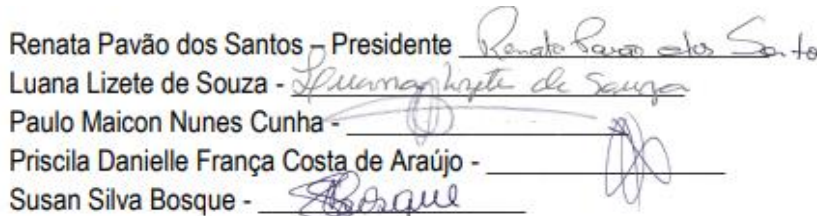 Renata Pavão dos Santos – Presidente Renata Pavão dos Santo
Luana Lizete de Souza - Luana Lizete de Souza
Paulo Maicon Nunes Cunha -
Priscila Danielle França Costa de Araújo -
Susan Silva Bosque - SBosque